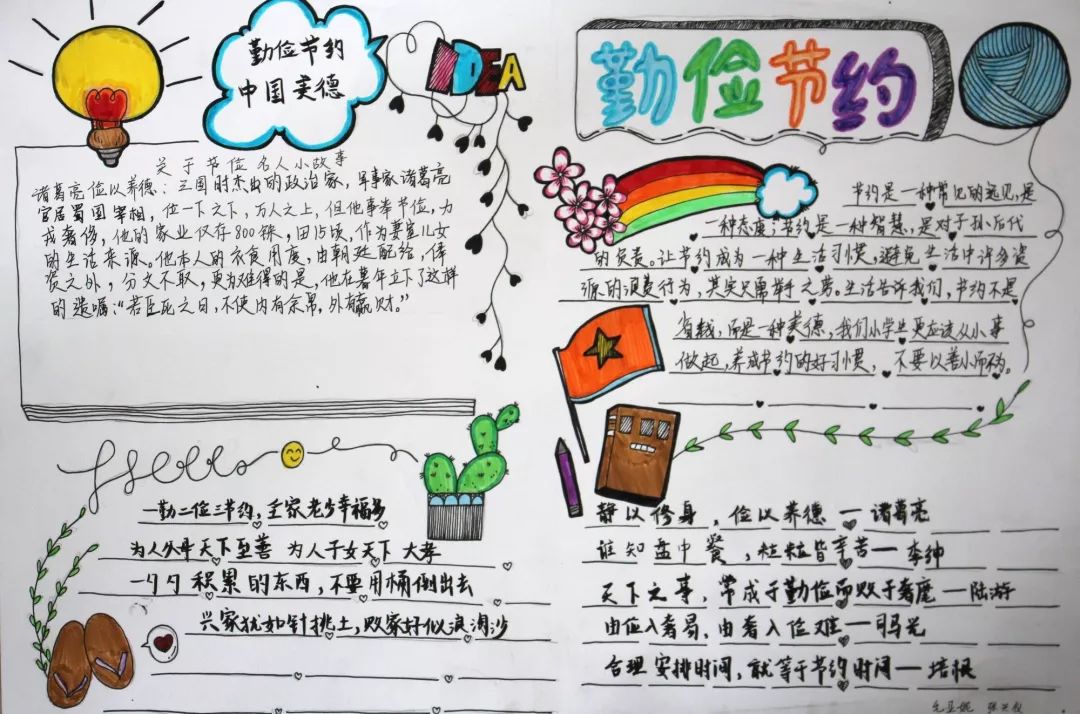 勤俭节约
中国美德
IDEA
勤俭节约
关于节俭名人小故事
诸葛亮俭以养德:三国时杰出的政治家,军事家诸葛亮
官居蜀国宰相,位一下之下,万人之上,但他事奉节俭,力
戎奢侈,他的家业仅存800株,田15顷,作为妻室儿女
的生活来源。他本人的衣食用度,由朝廷配给,俸
资之外,分文不取,更为难得的是,他在暮年立下了这样
的遗嘱:“若臣死之日,不使内有余帛,外有赢财。”
节约是一种常见的远见,是
一种态度;节约是一种智慧,是对于孙后代
的负责。让节约成为一种生活习惯,避免生活中许多资
源的浪费行为,其实只需举手之劳。生活告诉我们,节约不是
省钱,而是一种美德,我们小学生更应该从小事
做起,养成节约的好习惯,不要以善小而不为。
Hello
一勤二俭三节约,全家老少幸福多
为人父母天下至善 为人子女天下大孝
一勺勺积累的东西,不要用桶倒出去
兴家犹如针挑土,败家好似浪淘沙
静以修身,俭以养德一诸葛亮
谁知盘中餐,粒粒皆辛苦一李绅
天下之事,常成于勤俭而败于奢靡一陆游
由俭入奢易,由奢入俭难一司马光
合理安排时间,就等于节约时间一培根